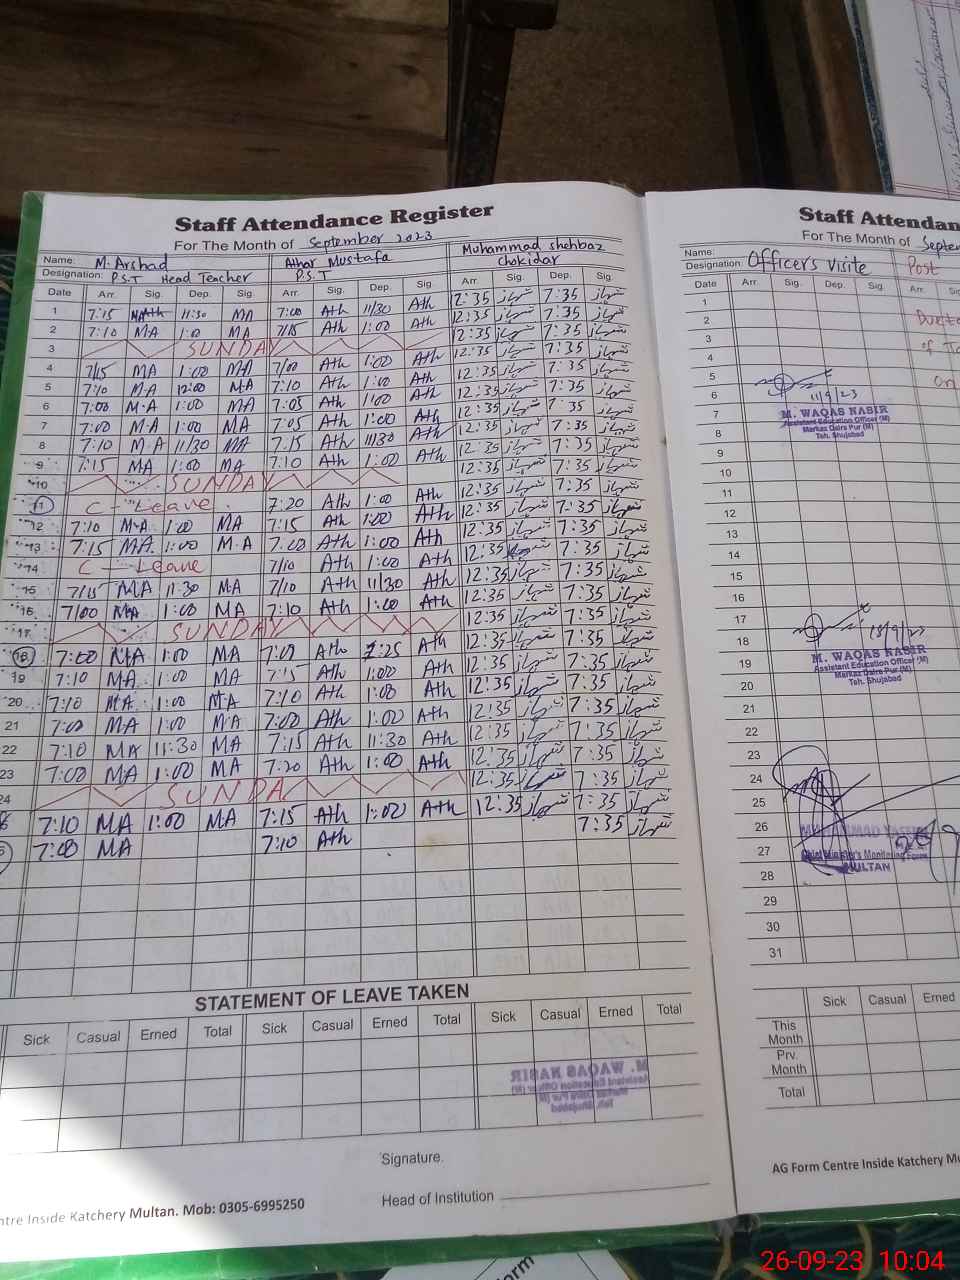 Staff Attendance Register
For The Month of September 2023
Name: M. Arshad Athar Mustafa Muhammad shehbaz
Designation: P.S.T Head Teacher P.S.T Chokidar
Date Arr. Sig. Dep. Sig. Arr. Sig. Dep. Sig. Arr. Sig. Dep. Sig.
1 7:15 11:30 MA 7:00 Ath 11/30 Ath 12:35 شہباز 7:35 شہباز
2 7:10 MA 1:00 MA 7/15 Ath 1:00 Ath 12:35 شہباز 7:35 شہباز
3 SUNDAY 12:35 شہباز 7:35 شہباز
4 7/15 MA 1:00 MA 7/00 Ath 1:00 Ath 12:35 شہباز 7:35 شہباز
5 7:10 MA 12:00 MA 7:10 Ath 1:00 Ath 12:35 شہباز 7:35 شہباز
6 7:00 M.A 1:00 MA 7:05 Ath 1:00 Ath 12:35 شہباز 7:35 شہباز
7 7:00 M.A 1:00 MA 7:05 Ath 1:00 Ath 12:35 شہباز 7:35 شہباز
8 7:10 M.A 11/30 MA 7.15 Ath 11/30 Ath 12:35 شہباز 7:35 شہباز
9 7:15 MA 1:00 MA 7:10 Ath 1:00 Ath 12:35 شہباز 7:35 شہباز
10 SUNDAY 12:35 شہباز 7:35 شہباز
11 C - Leave 7:20 Ath 1:00 Ath 12:35 شہباز 7:35 شہباز
12 7:10 M.A 1:00 MA 7:15 Ath 1:00 Ath 12:35 شہباز 7:35 شہباز
13 7:15 MA 1:00 M.A 7:00 Ath 1:00 Ath 12:35 شہباز 7:35 شہباز
14 C - Leave 7/10 Ath 1:00 Ath 12:35 شہباز 7:35 شہباز
15 7/15 MA 11:30 MA 7/10 Ath 11/30 Ath 12:35 شہباز 7:35 شہباز
16 7/00 MA 1:00 MA 7:10 Ath 1:00 Ath 12:35 شہباز 7:35 شہباز
17 SUNDAY 12:35 شہباز 7:35 شہباز
18 7:00 MA 1:00 MA 7:00 Ath 1:25 Ath 12:35 شہباز 7:35 شہباز
19 7:10 MA 1:00 MA 7:15 Ath 1:00 Ath 12:35 شہباز 7:35 شہباز
20 7:10 MA 1:00 MA 7:10 Ath 1:00 Ath 12:35 شہباز 7:35 شہباز
21 7:00 MA 1:00 MA 7:00 Ath 1:00 Ath 12:35 شہباز 7:35 شہباز
22 7:10 MA 11:30 MA 7:15 Ath 11:30 Ath 12:35 شہباز 7:35 شہباز
23 7:00 MA 1:00 MA 7:20 Ath 1:00 Ath 12:35 شہباز 7:35 شہباز
24 SUNDAY 12:35 شہباز 7:35 شہباز
7:10 MA 1:00 MA 7:15 Ath 1:00 Ath 12:35 شہباز 7:35 شہباز
7:00 MA 7:10 Ath 7:35 شہباز
STATEMENT OF LEAVE TAKEN
Sick Casual Erned Total Sick Casual Erned Total Sick Casual Erned Total
M. WAQAS NASIR
Assistant Education Officer (M)
Markaz Daira Pur (M)
Teh. Shujabad
Signature.
Head of Institution
ntre Inside Katchery Multan. Mob: 0305-6995250
Staff Attendan
For The Month of Septe
Name:
Designation: Officer's Visite Post
Date Arr. Sig. Dep. Sig. Arr.
1
2
3
4
5
6 11/9/23
7 M. WAQAS NASIR
Assistant Education Officer (M)
Markaz Daira Pur (M)
8 Teh. Shujabad
9
10
11
12
13
14
15
16
17
18 18/9/23
19 M. WAQAS NASIR
Assistant Education Officer (M)
Markaz Daira Pur (M)
20 Teh. Shujabad
21
22
23
24
25
26
27 Chief Minister's Monitoring Force
28 MULTAN
29
30
31
Sick Casual Erned
This Month
Prv. Month
Total
AG Form Centre Inside Katchery Mu
26-09-23 10:04